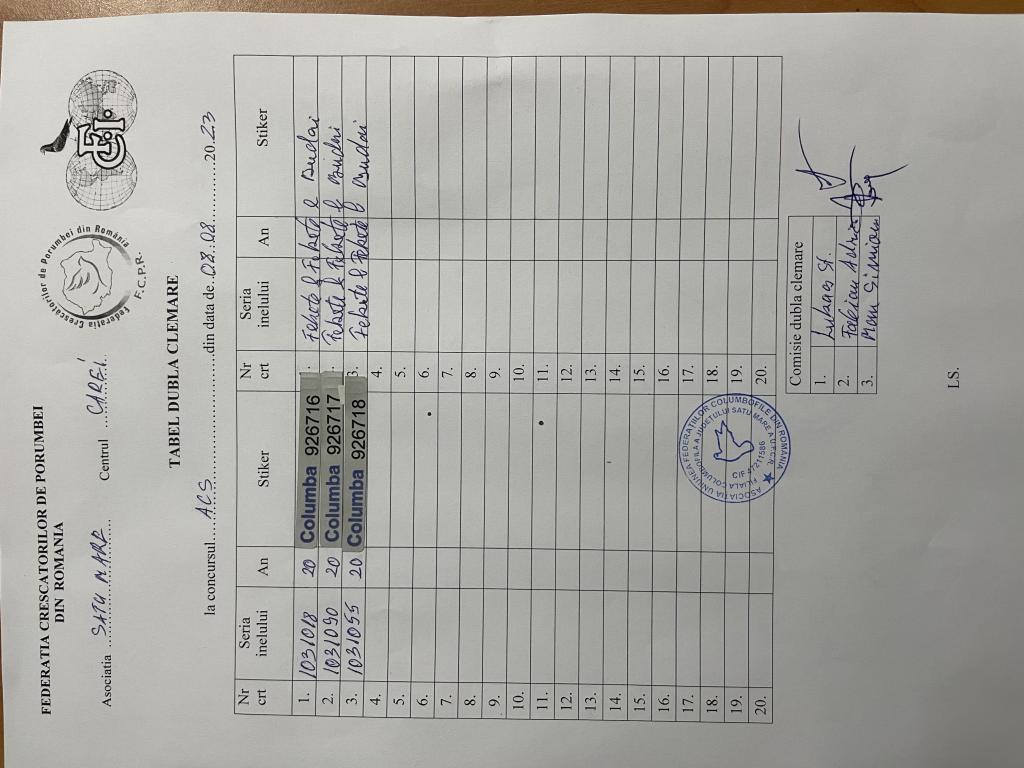 FEDERATIA CRESCATORILOR DE PORUMBEI
DIN ROMANIA
Federatia Crescatorilor de Porumbei din România
F.C.P.R.
FCI
Asociatia ..SATU MARE.. Centrul ..CAREI..
TABEL DUBLA CLEMARE
la concursul.....ACS.....din data de..08.08.....20.23
Nr crt Seria inelului An Stiker Nr crt Seria inelului An Stiker
1. 1031018 20 Columba 926716 1. Fekete & Fekete & Budai
2. 1031090 20 Columba 926717 2. Fekete & Fekete & Budai
3. 1031055 20 Columba 926718 3. Fekete & Fekete & Budai
4. 4.
5. 5.
6. 6.
7. 7.
8. 8.
9. 9.
10. 10.
11. 11.
12. 12.
13. 13.
14. 14.
15. 15.
16. 16.
17. 17.
18. 18.
19. 19.
20. 20.
ASOCIATIA UNIUNEA FEDERATIILOR COLUMBOFILE DIN ROMANIA
FILIALA COLUMBOFILA A JUDETULUI SATU MARE A U.F.C.R.
CIF 47211586
Comisie dubla clemare
1. St.
2.
3.
LS.